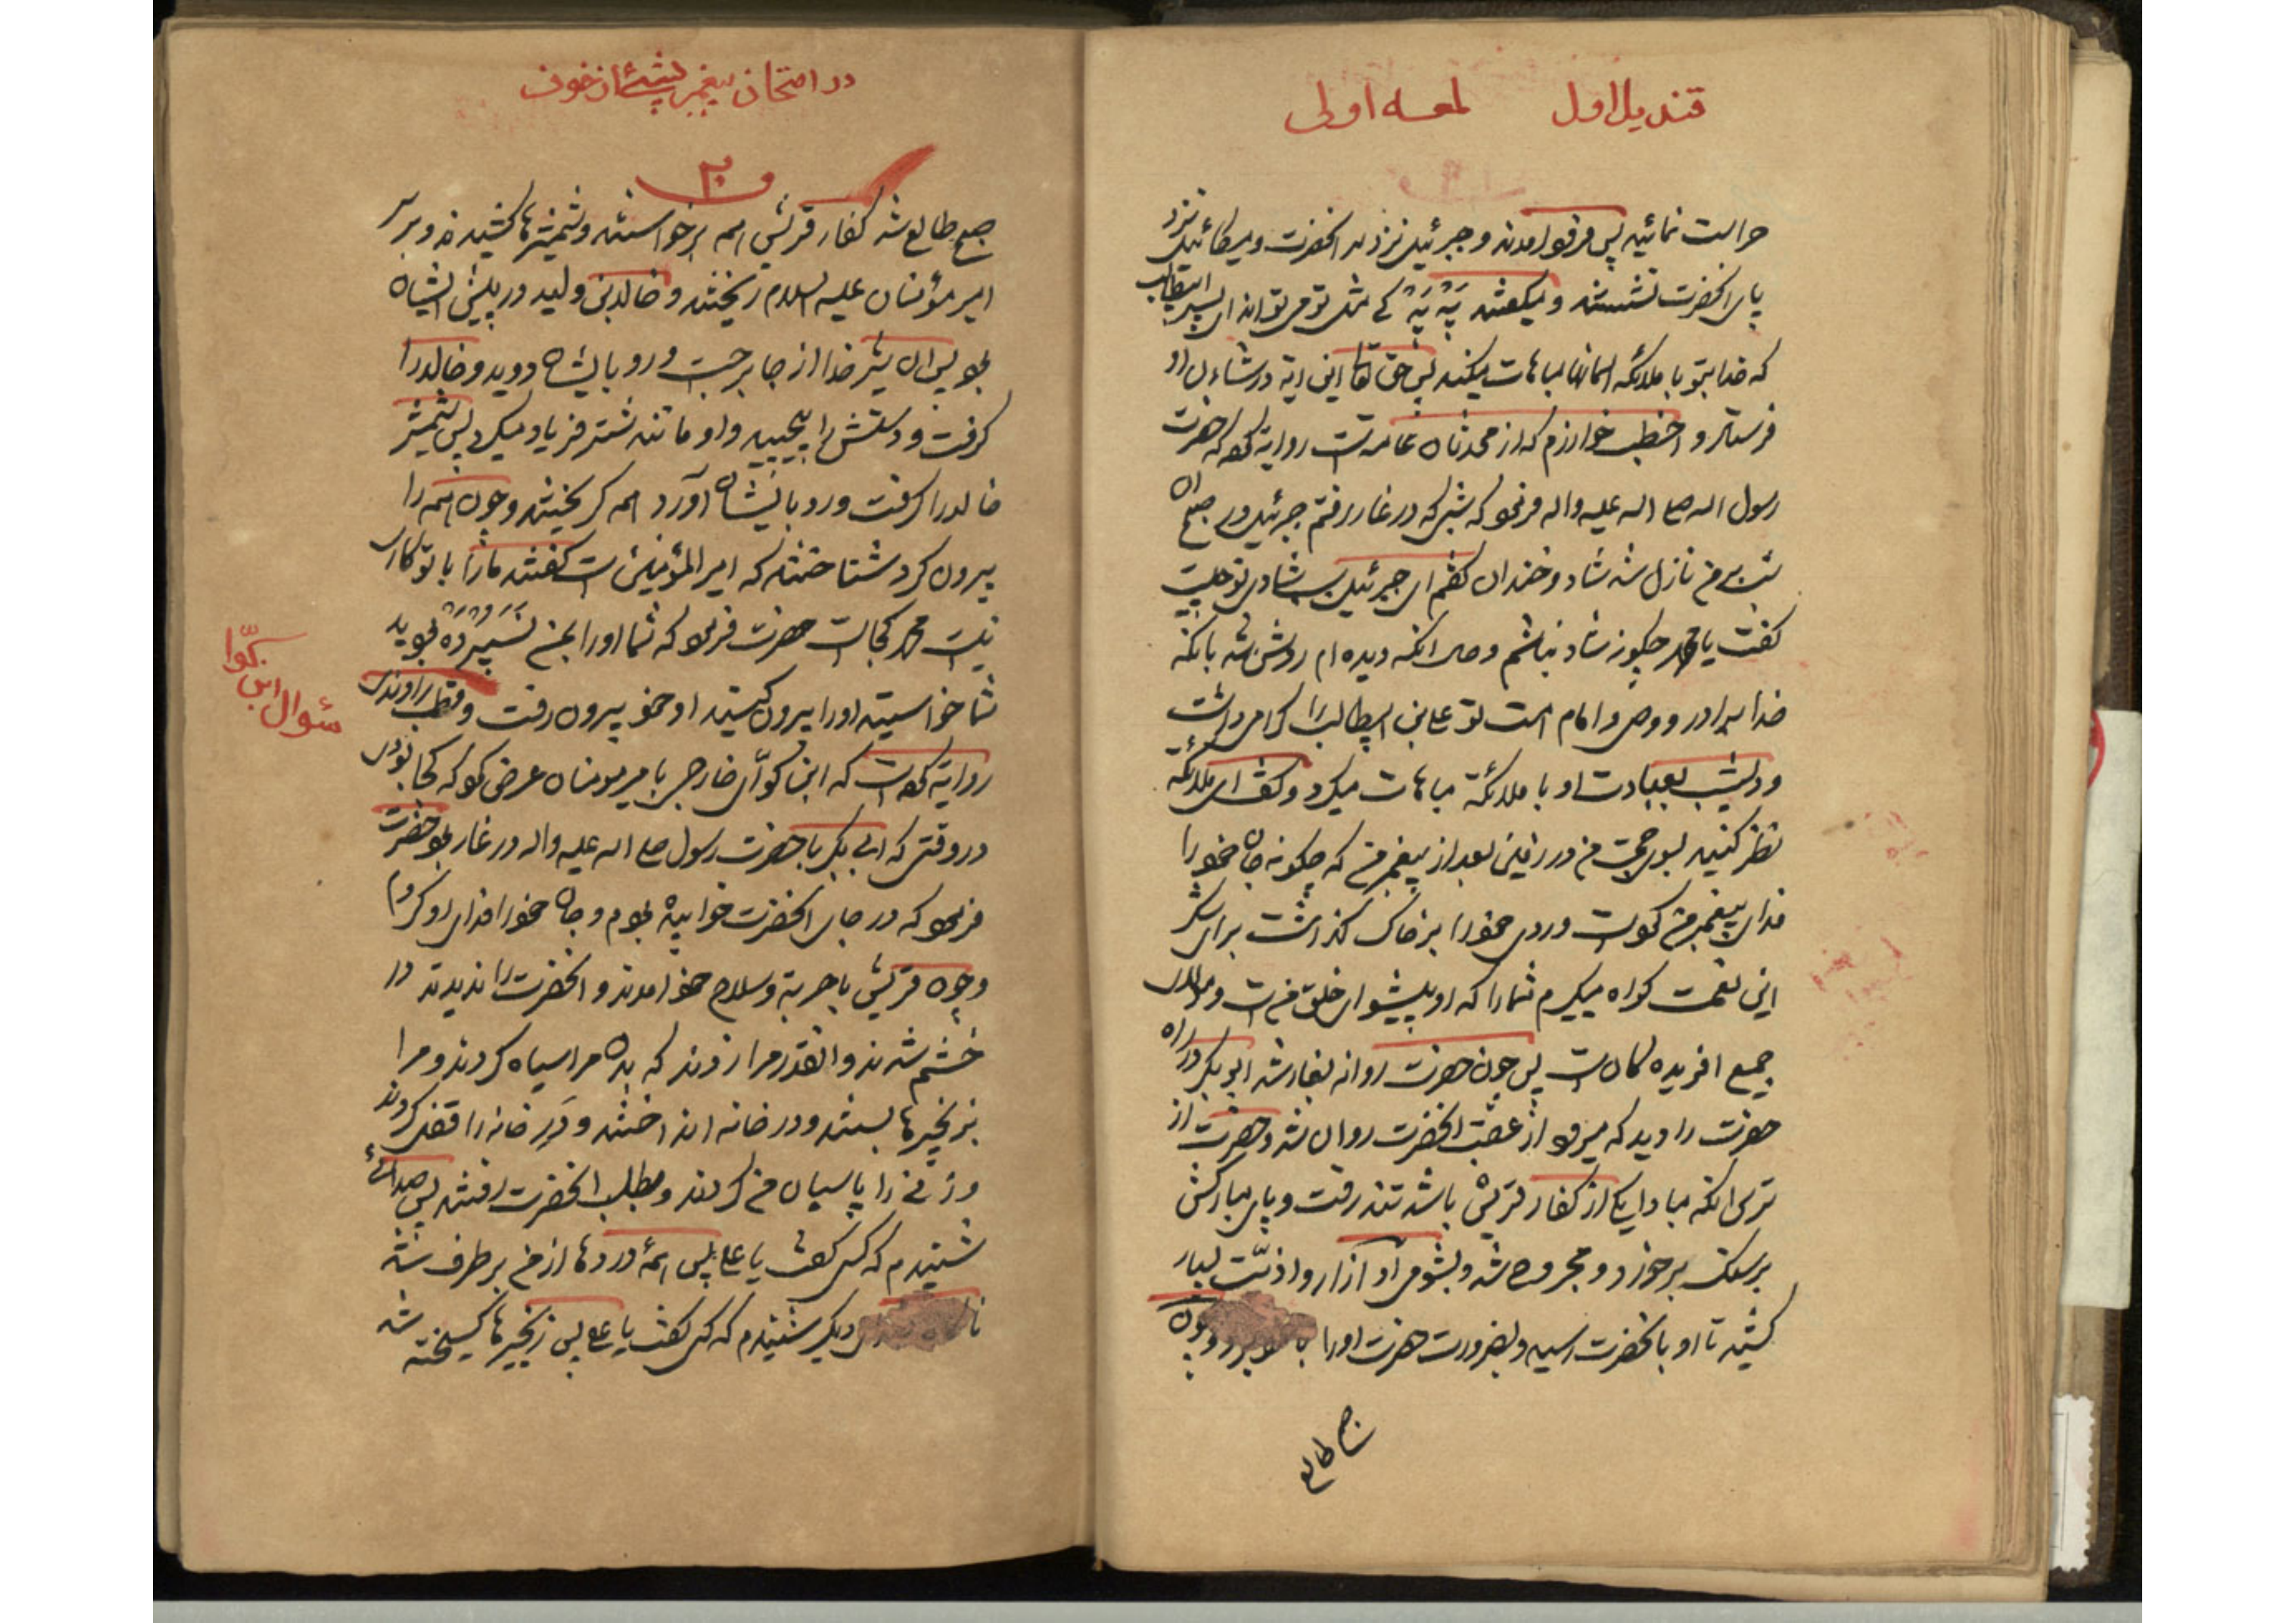 قندیل اول لمعه اولی
حراست نمائید پس فرود آمدند و جبرئیل نزد سر آنحضرت و میکائیل نزد
پای آنحضرت نشستند و میگفتند بَهْ بَهْ کی مثل تو می تواند ای پسر ابیطالب
که خدا بتو با ملائکه آسمانها مباهات میکند پس حق تعالی این آیه در شأن او
فرستاد و اخطب خوارزم که از محدثان عامه است روایة کرده که حضرت
رسول الله صلی الله علیه واله فرمود که شبی که در غار رفتم جبرئیل در صبح آن
شب بر من نازل شد شاد و خندان گفتم ای جبرئیل بسیار شادی تو چیست
گفت یا محمد چگونه شاد نباشم و حال آنکه دیده ام روشن شد بآنکه
خدا برادر و وصی و امام امت تو علی بن ابیطالب را گرامی داشت
و دیشب بعبادت او با ملائکة مباهات میکرد و گفت ای ملائکة
نظر کنید بسوی حجت من در زمین بعد از پیغمبر من که چگونه جان خود را
فدای پیغمبر من کرده است و روی خود را بر خاک گذاشت برای شکر
این نعمت گواه میگیرم شما را که او پیشوای خلق من است و مولای
جمیع آفریدگان است پس چون حضرت روانه بغار شد ابوبکر در راه
حضرت را دید که میرود از عقب آنحضرت روان شد و حضرت از
ترس آنکه مبادا یکی از کفار قریش باشد تند رفت و پای مبارکش
بر سنگ برخورد و مجروح شد و بشومی او آزار و اذیّت بسیار
کشید تا او بآنحضرت رسید و بضرورت حضرت او را با خود برد و چون
صبح طالع
در امتحان پیغمبر پیشی از خوف
صبح طالع شد کفار قریش همه برخواستند و شمشیرها کشیدند و بر سر
امیر مؤمنان علیه السلام ریختند و خالد بن ولید در پیش ایشان
بود پس آن شیر خدا از جا برجست و رو بایشان دوید و خالد را
گرفت و دستش را پیچید و او مانند شتر فریاد میکرد پس شمشیر
خالد را گرفت و رو بایشان آورد همه گریختند و چون همه را
بیرون کرد شناختند که امیر المؤمنین است گفتند ما را با تو کاری
نیست محمد کجاست حضرت فرمود که شما او را بمن نَسپُردَهْ بودید
شما خواستید او را بیرون کنید او خود بیرون رفت و قطب راوندی
روایة کرده است که ابن کوّای خارجی با میر مومنان عرض کرد که کجا بودی
در وقتی که ابی بکر با حضرت رسول صلی الله علیه واله در غار بود حضرت
فرمود که در جای آنحضرت خوابیده بودم و جان خود را فدای او کردم
و چون قریش با حربه و سلاح خود آمدند و آنحضرت را ندیدند در
خشم شدند و آنقدر مرا زدند که بدن مرا سیاه کردند و مرا
بزنجیرها بستند و در خانه انداختند و دَرِ خانه را قفل کردند
و زنی را پاسبان من کردند و بطلب آنحضرت رفتند پس صدائی
شنیدم که کسی گفت یا علی پس همه دردها از من بر طرف شد
دیگر شنیدم که کسی گفت یا علی پس زنجیرها گسیخته شد
سئوال ابن کوّا